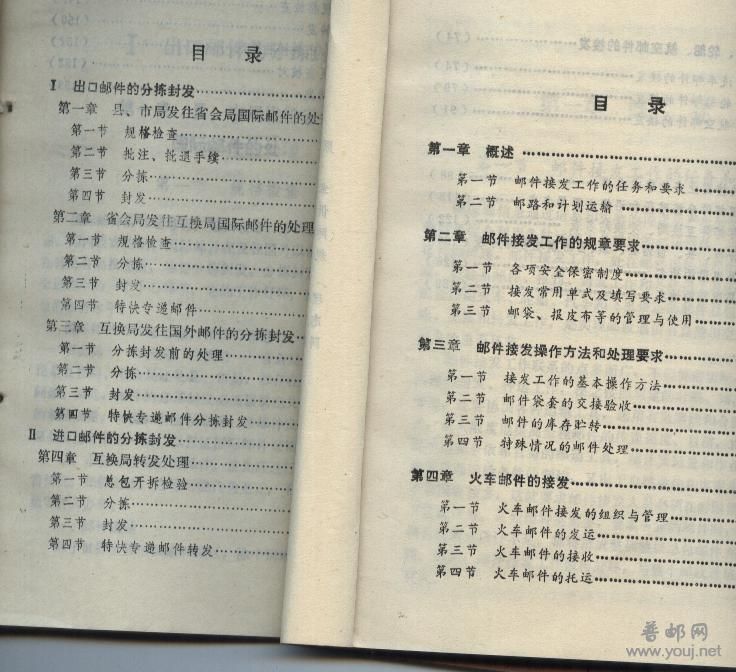 目 录
I 出口邮件的分拣封发
第一章 县、市局发往省会局国际邮件的处
第一节 规格检查
第二节 批注、批退手续
第三节 分拣
第四节 封发
第二章 省会局发往互换局国际邮件的处理
第一节 规格检查
第二节 分拣
第三节 封发
第四节 特快专递邮件
第三章 互换局发往国外邮件的分拣封发
第一节 分拣封发前的处理
第二节 分拣
第三节 封发
第四节 特快专递邮件分拣封发
II 进口邮件的分拣封发
第四章 互换局转发处理
第一节 总包开拆检验
第二节 分拣
第三节 封发
第四节 特快专递邮件转发
目 录
第一章 概述
第一节 邮件接发工作的任务和要求
第二节 邮路和计划运输
第二章 邮件接发工作的规章要求
第一节 各项安全保密制度
第二节 接发常用单式及填写要求
第三节 邮袋、报皮布等的管理与使用
第三章 邮件接发操作方法和处理要求
第一节 接发工作的基本操作方法
第二节 邮件袋套的交接验收
第三节 邮件的库存贮转
第四节 特殊情况的邮件处理
第四章 火车邮件的接发
第一节 火车邮件接发的组织与管理
第二节 火车邮件的发运
第三节 火车邮件的接收
第四节 火车邮件的托运
普邮网
www.youj.net